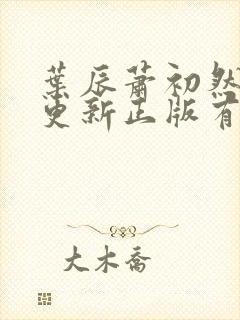 葉辰蕭初然
更新正版有
大木喬